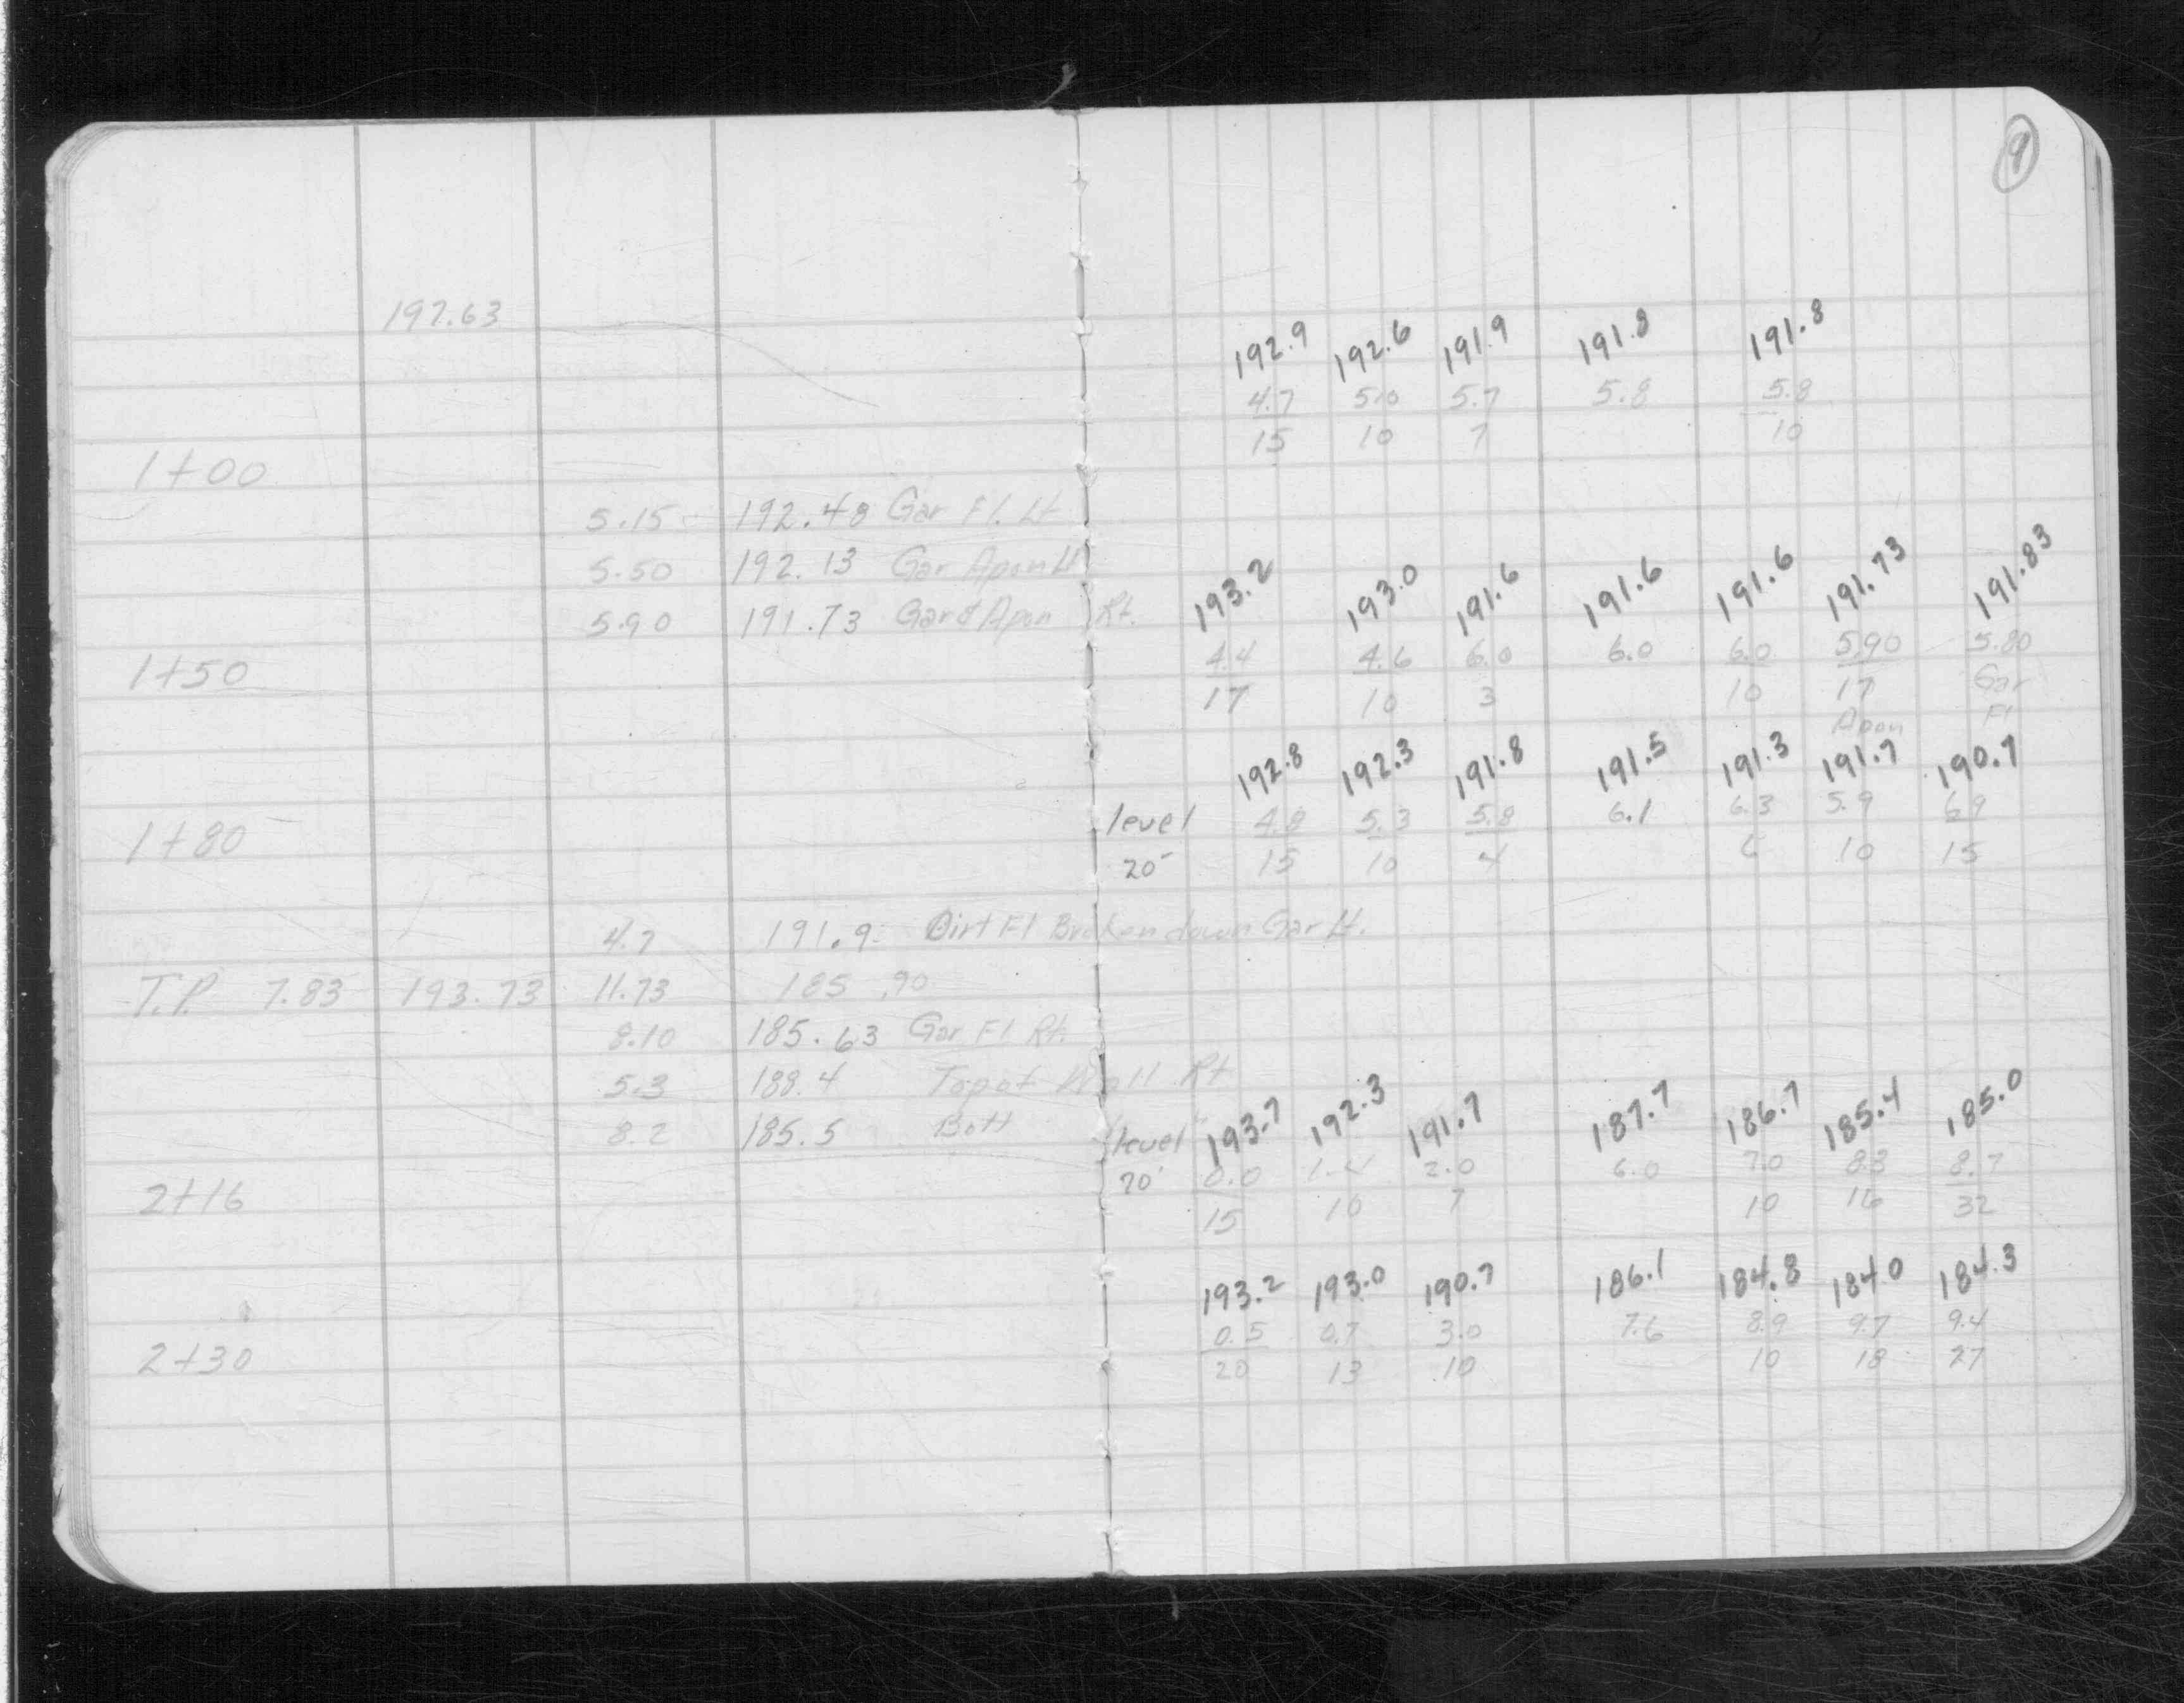 9
197.63
192.9 192.6 191.9 191.8 191.8
4.7 5.0 5.7 5.8 5.8
15 10 7 10
1+00
5.15 192.48 Gar Fl. Lt
5.50 192.13 Gar Apon Lt
5.90 191.73 Gar & Apon Rt.
193.2 193.0 191.6 191.6 191.6 191.73 191.83
4.4 4.6 6.0 6.0 6.0 5.90 5.80
1+50
17 10 3 10 17 Gar
Apon Fl
192.8 192.3 191.8 191.5 191.3 191.7 190.7
level 4.8 5.3 5.8 6.1 6.3 5.9 6.9
1+80
20' 15 10 4 10 15
4.7 191.9 Dirt Fl Broken down Gar Lt.
T.P. 7.83 193.73 11.73 185.90
8.10 185.63 Gar Fl. Rt.
5.3 188.4 Top of Wall Rt
8.2 185.5 Bott
193.7 192.3 191.7 187.7 186.7 185.4 185.0
level 0.0 1.4 2.0 6.0 7.0 8.3 8.7
2+16
20' 15 10 7 10 16 32
193.2 193.0 190.7 186.1 184.8 184.0 184.3
0.5 0.7 3.0 7.6 8.9 9.7 9.4
2+30
20 13 10 10 18 27